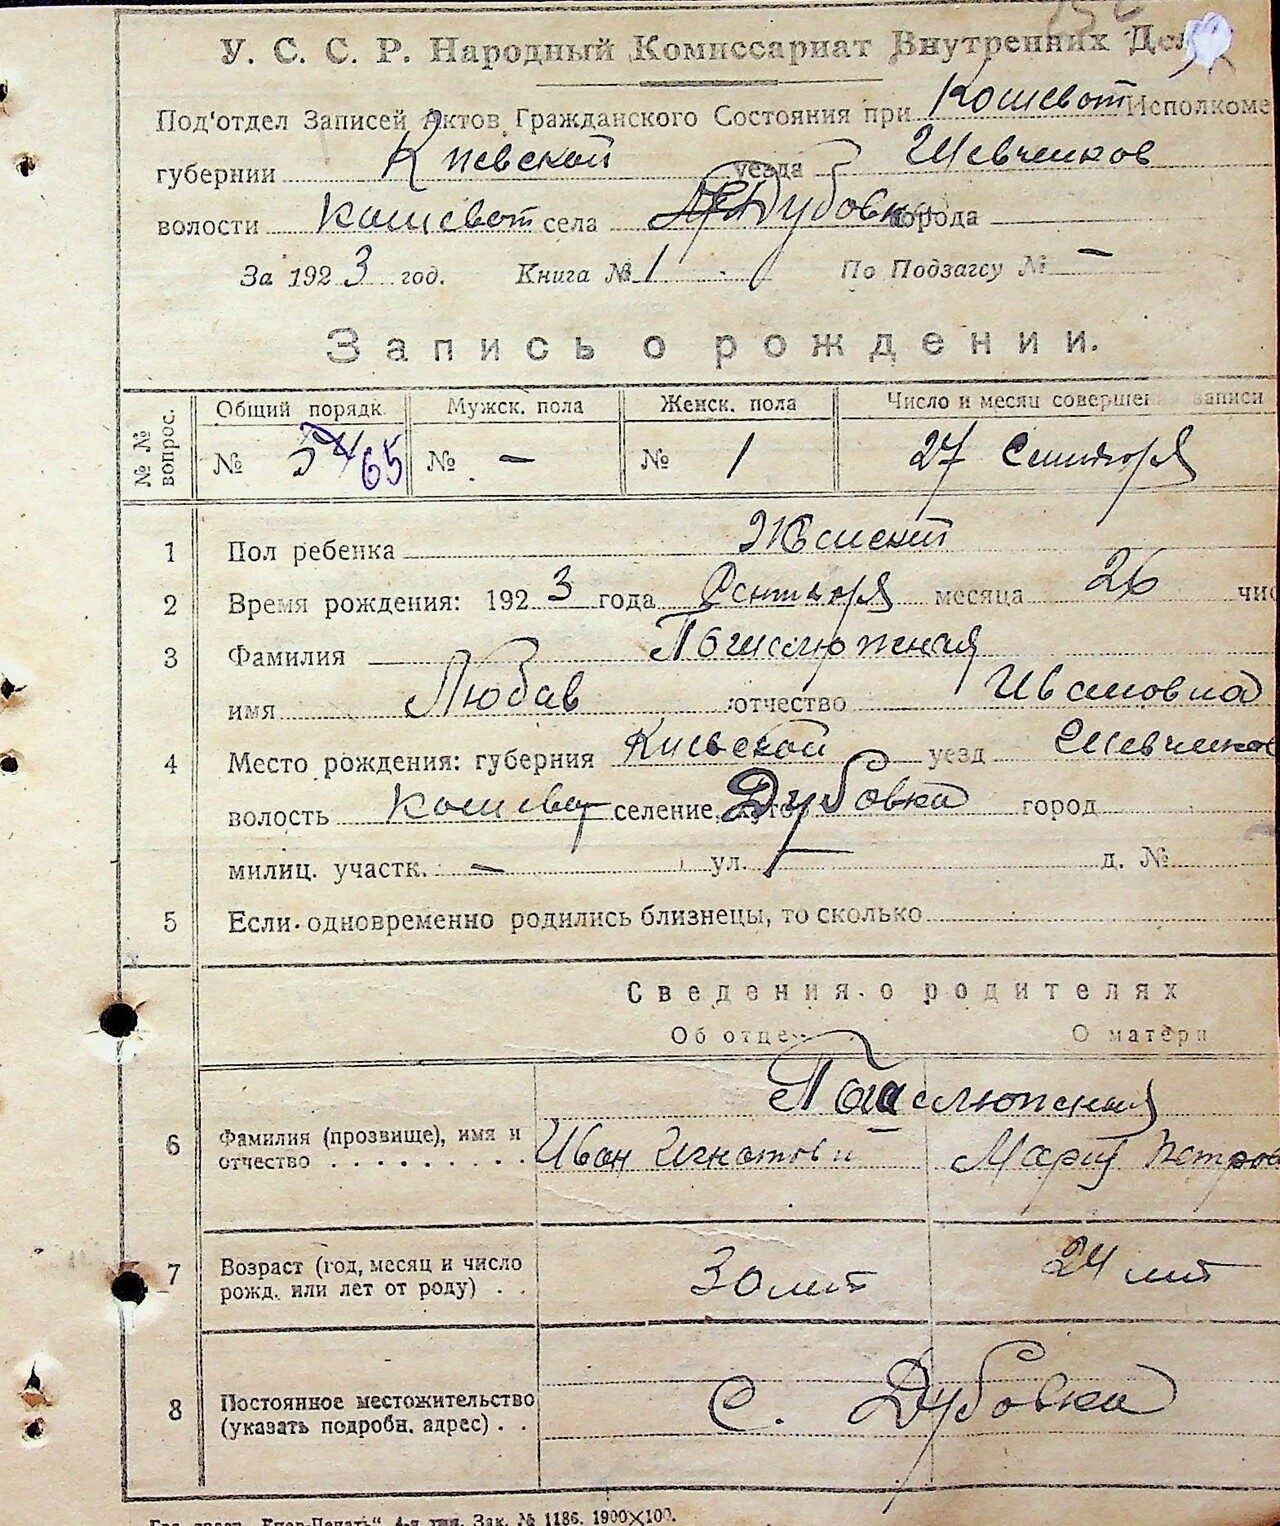 У. С. С. Р. Народный Комиссариат Внутренних Дел
Под'отдел Записей Актов Гражданского Состояния при Кошеват Исполкоме
губернии Киевской уезда Шевченков
волости Кошеват села Дубовка города
За 1923 год. Книга № 1 По Подзагсу № —
Запись о рождении.
№ № вопрос. Общий порядк. Мужск. пола Женск. пола Число и месяц совершения записи
№ 54 65 № — № 1 27 Сентября
1 Пол ребенка Женский
2 Время рождения: 1923 года Сентября месяца 26 чис
3 Фамилия
имя Любов отчество Ивановна
4 Место рождения: губерния Киевской уезд Шевченков
волость Кошеват селение, хутор Дубовка город
милиц. участк. — ул. — д. №
5 Если одновременно родились близнецы, то сколько
Сведения о родителях
Об отце О матери
6 Фамилия (прозвище), имя и
отчество Иван Игнатов Мария Петров
7 Возраст (год, месяц и число
рожд. или лет от роду) 30 лет 24 лет
8 Постоянное местожительство
(указать подробн. адрес) С. Дубовка
"Киев-Печать" 4-я Зак. № 1186. 1900×100.